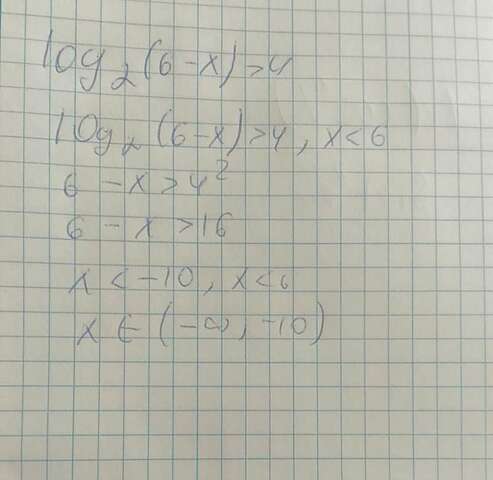 log₂(6-x)>4
log₂(6-x)>4, x<6
6-x>4²
6-x>16
x<-10, x<6
x∈(-∞,-10)